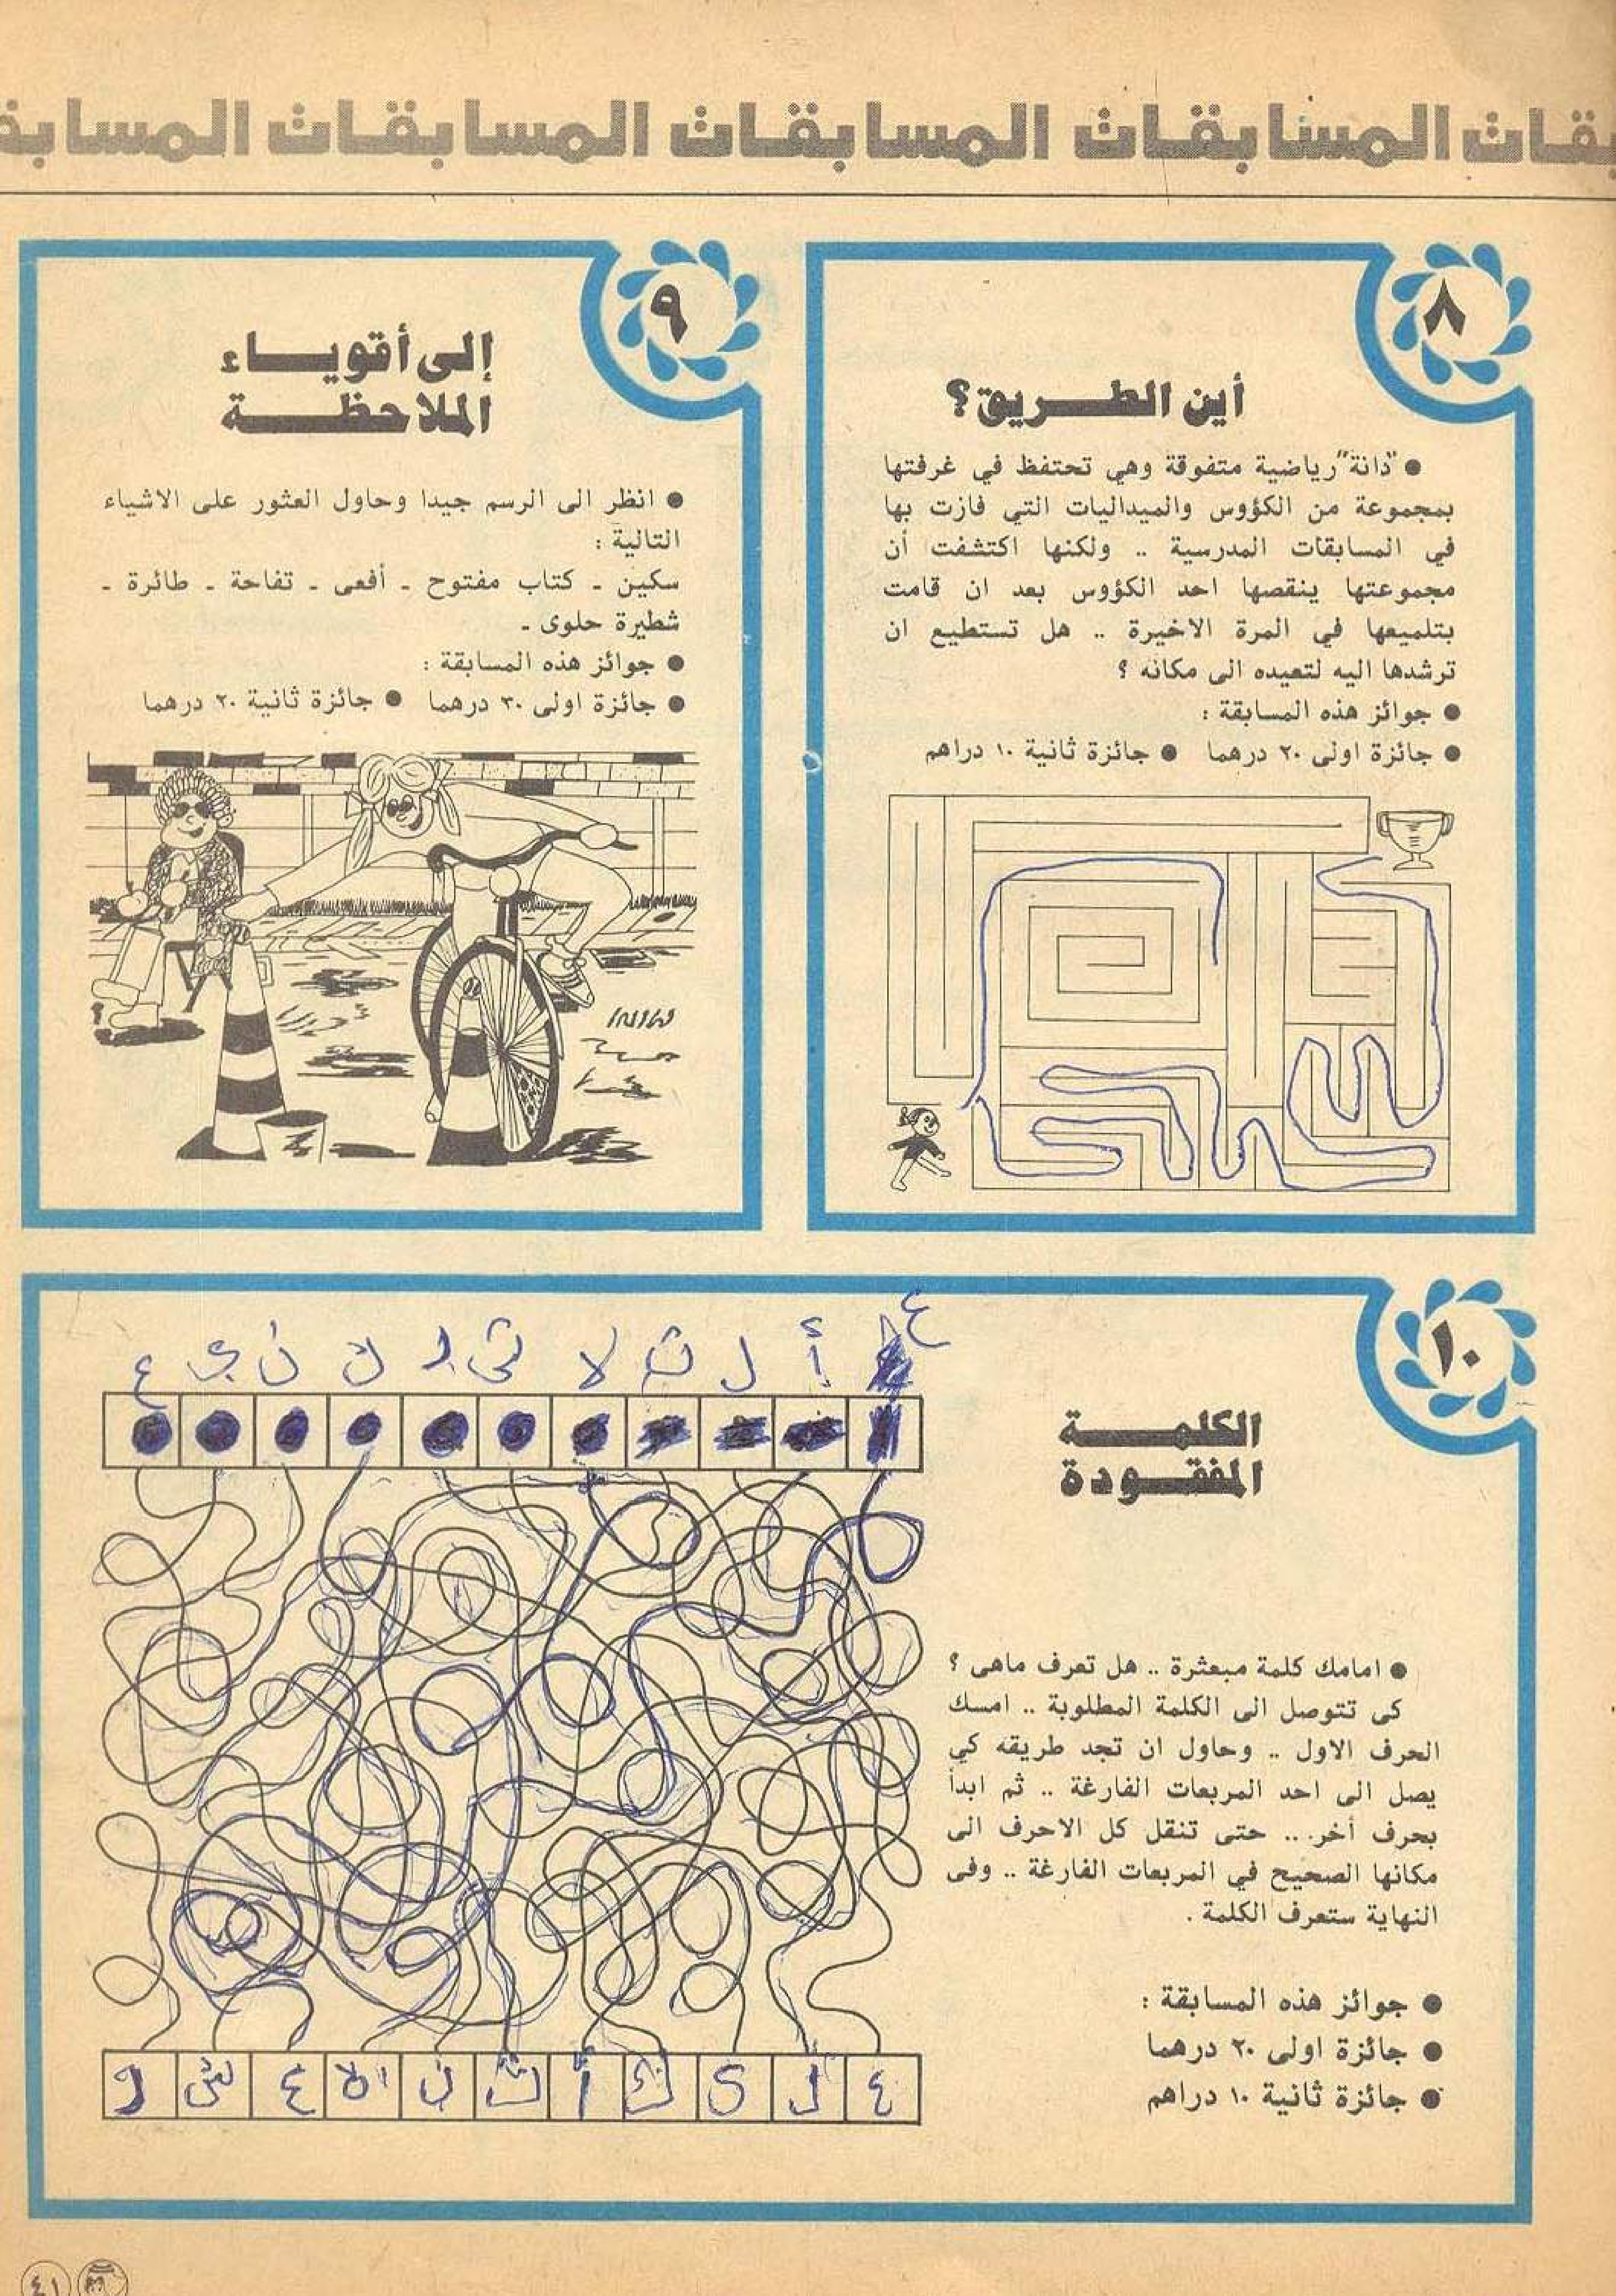 المسابقات المسابقات المسابقات
٨
أين الطريق؟
● "دانة" رياضية متفوقة وهي تحتفظ في غرفتها
بمجموعة من الكؤوس والميداليات التي فازت بها
في المسابقات المدرسية .. ولكنها اكتشفت أن
مجموعتها ينقصها احد الكؤوس بعد ان قامت
بتلميعها في المرة الاخيرة .. هل تستطيع ان
ترشدها اليه لتعيده الى مكانه ؟
● جوائز هذه المسابقة :
● جائزة اولى ٢٠ درهما ● جائزة ثانية ١٠ دراهم
٩
إلى أقوياء
الملاحظة
● انظر الى الرسم جيدا وحاول العثور على الاشياء
التالية :
سكين ـ كتاب مفتوح ـ أفعى ـ تفاحة ـ طائرة ـ
شطيرة حلوى ـ
● جوائز هذه المسابقة :
● جائزة اولى ٣٠ درهما ● جائزة ثانية ٢٠ درهما
١٠
الكلمة
المفقودة
● امامك كلمة مبعثرة .. هل تعرف ماهى ؟
كى تتوصل الى الكلمة المطلوبة .. امسك
الحرف الاول .. وحاول ان تجد طريقه كي
يصل الى احد المربعات الفارغة .. ثم ابدأ
بحرف أخر .. حتى تنقل كل الاحرف الى
مكانها الصحيح في المربعات الفارغة .. وفى
النهاية ستعرف الكلمة .
● جوائز هذه المسابقة :
● جائزة اولى ٢٠ درهما
● جائزة ثانية ١٠ دراهم
٤١